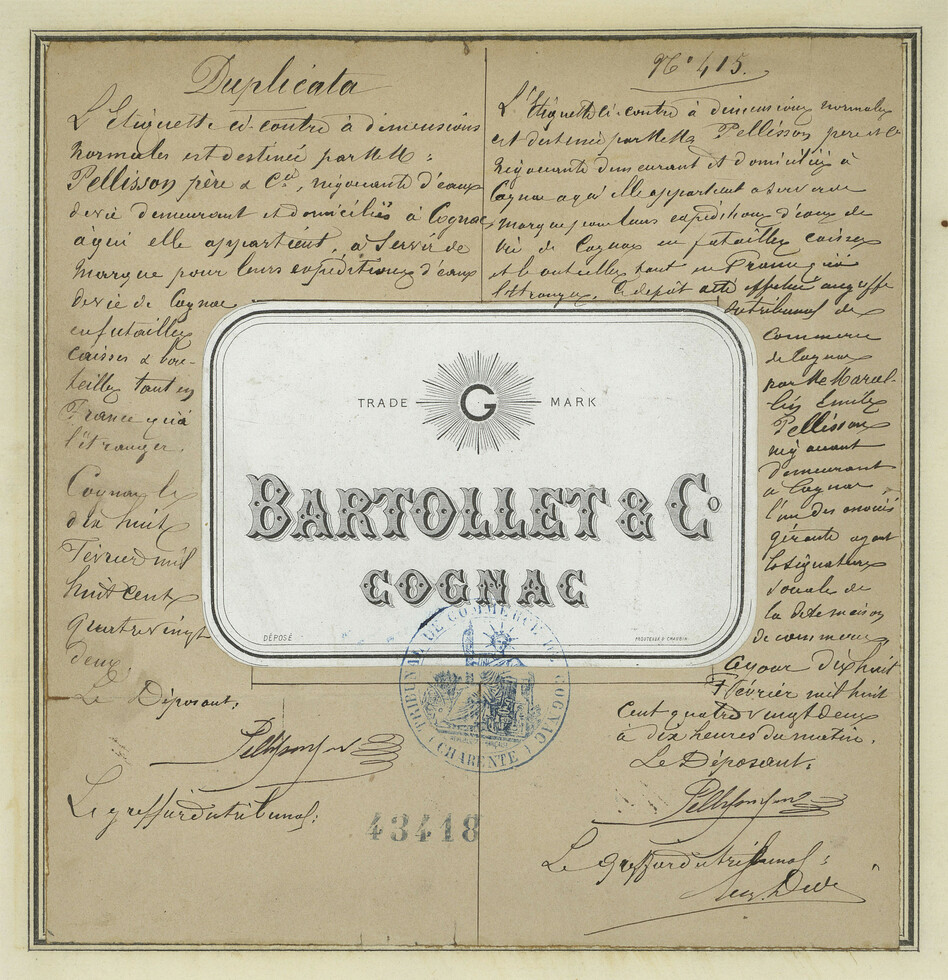 Duplicata
L'Etiquette ci-contre à dimensions
normales est destinée par M M :
Pellisson père & Cie, négociants d'eaux
de vie demeurant et domiciliés à Cognac
à qui elle appartient, à servir de
marque pour leurs expéditions d'eaux
de vie de Cognac
en futailles
caisses & bou-
teilles tant en
France qu'à
l'étranger.
Cognac le
dix huit
Février mil
huit cent
quatre vingt
deux.
Le Déposant:
Le greffier du tribunal:
No 415.
L'Etiquette ci-contre à dimensions normales
est destinée par M M Pellisson père et Cie
négociants demeurant et domiciliés à
Cognac à qui elle appartient à servir de
marque pour leurs expéditions d'eaux de
vie de Cognac en futailles caisses
et bouteilles tant en France qu'à
l'étranger. Ce dépôt a été effectué au greffe
du tribunal de
commerce
de Cognac
par Mr Marcel-
lin Emile
Pellisson
négociant
demeurant
à Cognac,
l'un des associés
gérants ayant
la signature
sociale de
la dite maison
de commerce
Ce jour dix huit
Février mil huit
cent quatre vingt deux
à dix heures du matin.
Le Déposant:
Le Greffier du tribunal:
TRADE G MARK
BARTOLLET & Co
COGNAC
DÉPOSÉ
TRIBUNAL DE COMMERCE DE COGNAC
(CHARENTE)
43418